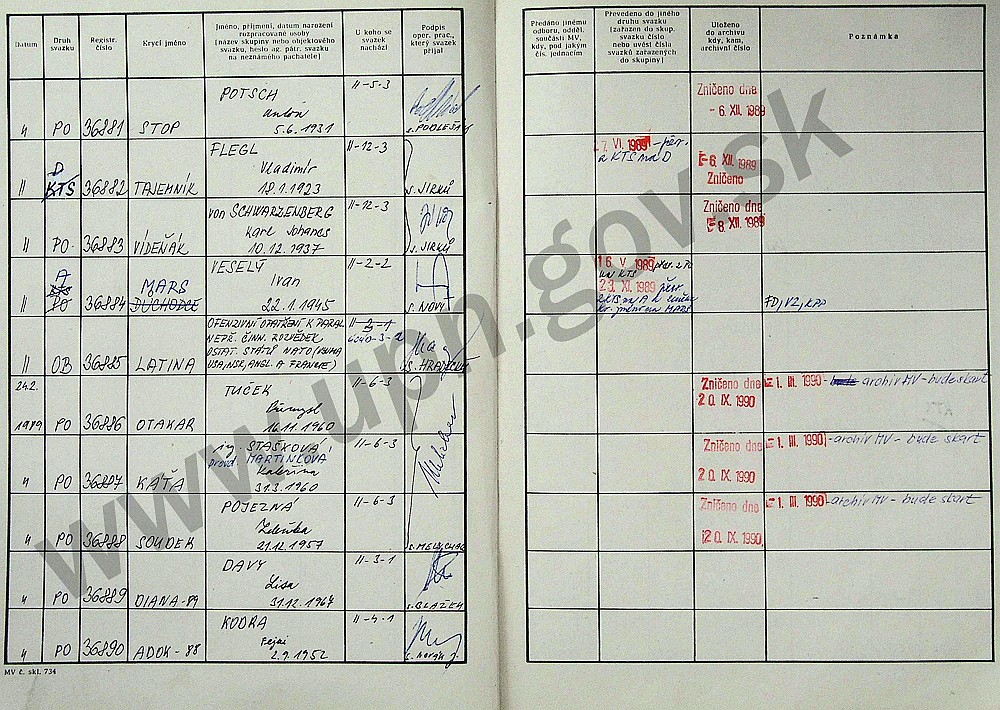 Datum
Druh svazku
Registr. číslo
Krycí jméno
Jméno, příjmení, datum narození
rozpracované osoby
(název skupiny nebo objektového
svazku, heslo ag. pátr. svazku
na neznámého pachatele)
U koho se
svazek
nachází
Podpis
oper. prac.,
který svazek
přijal
Předáno jinému
odboru, odděl.
součásti MV,
kdy, pod jakým
čís. jednacím
Převedeno do jiného
druhu svazku
(zařazen do skup.
svazku číslo
nebo uvést čísla
svazků zařazených
do skupiny)
Uloženo
do archivu
kdy, kam,
archivní číslo
Poznámka
POTSCH
Anton
5.6.1931
II-5-3
" PO 36881 STOP
s. PODLEŠÁK
Zničeno dne
- 6. XII. 1989
FLEGL
Vladimír
18.1.1923
II-12-3
D
" KTS 36882 TAJEMNÍK
s. JIRKŮ
VI. 1989 - přev.
a KTS na D
- 6. XII. 1989
Zničeno
von SCHWARZENBERG
Karl Johanes
10.12.1937
II-12-3
" PO- 36883 VÍDEŇÁK
s. JIRKŮ
Zničeno dne
- 8. XII. 1989
VESELÝ
Ivan
22.1.1945
II-2-2
A
KTS
" PO 36884 MARS
DŮCHODCE
s. NOVÝ
16. V. 1989 přev. z PO
na KTS
23. XI. 1989 přev.
z KTS na A
kr. jména na MARS
FD, VZ, KPD
OFENZIVNÍ OPATŘENÍ K PARAL.
NEPŘ. ČINN. ROZVĚDEK
OSTAT. STÁTŮ NATO (KROMĚ
USA, NSR, ANGL. A FRANCIE)
" OB 36885 LATINA
s. HRADECKÝ
24.2.
1989 PO 36886 OTAKAR
TUČEK
Přemysl
16.11.1960
II-6-3
Zničeno dne - 1. III. 1990 - bude archiv MV - bude skart
20. IX. 1990
ing. STAŠKOVÁ
provd. MARTINCOVÁ
Kateřina
31.3.1960
II-6-3
" PO 36887 KÁŤA
Zničeno dne - 1. III. 1990 - archiv MV - bude skart
20. IX. 1990
POJEZNÁ
Zdeňka
21.12.1957
II-6-3
" PO 36888 SOUDEK
s. MELICHAR
Zničeno dne - 1. III. 1990 - archiv MV - bude skart
20. IX. 1990
DAVY
Lisa
31.12.1967
II-3-1
" PO 36889 DIANA-89
s. BLAŽEK
KODRA
2.9.1952
II-4-1
" PO 36890 ADOK-88
MV č. skl. 734
www.upn.gov.sk